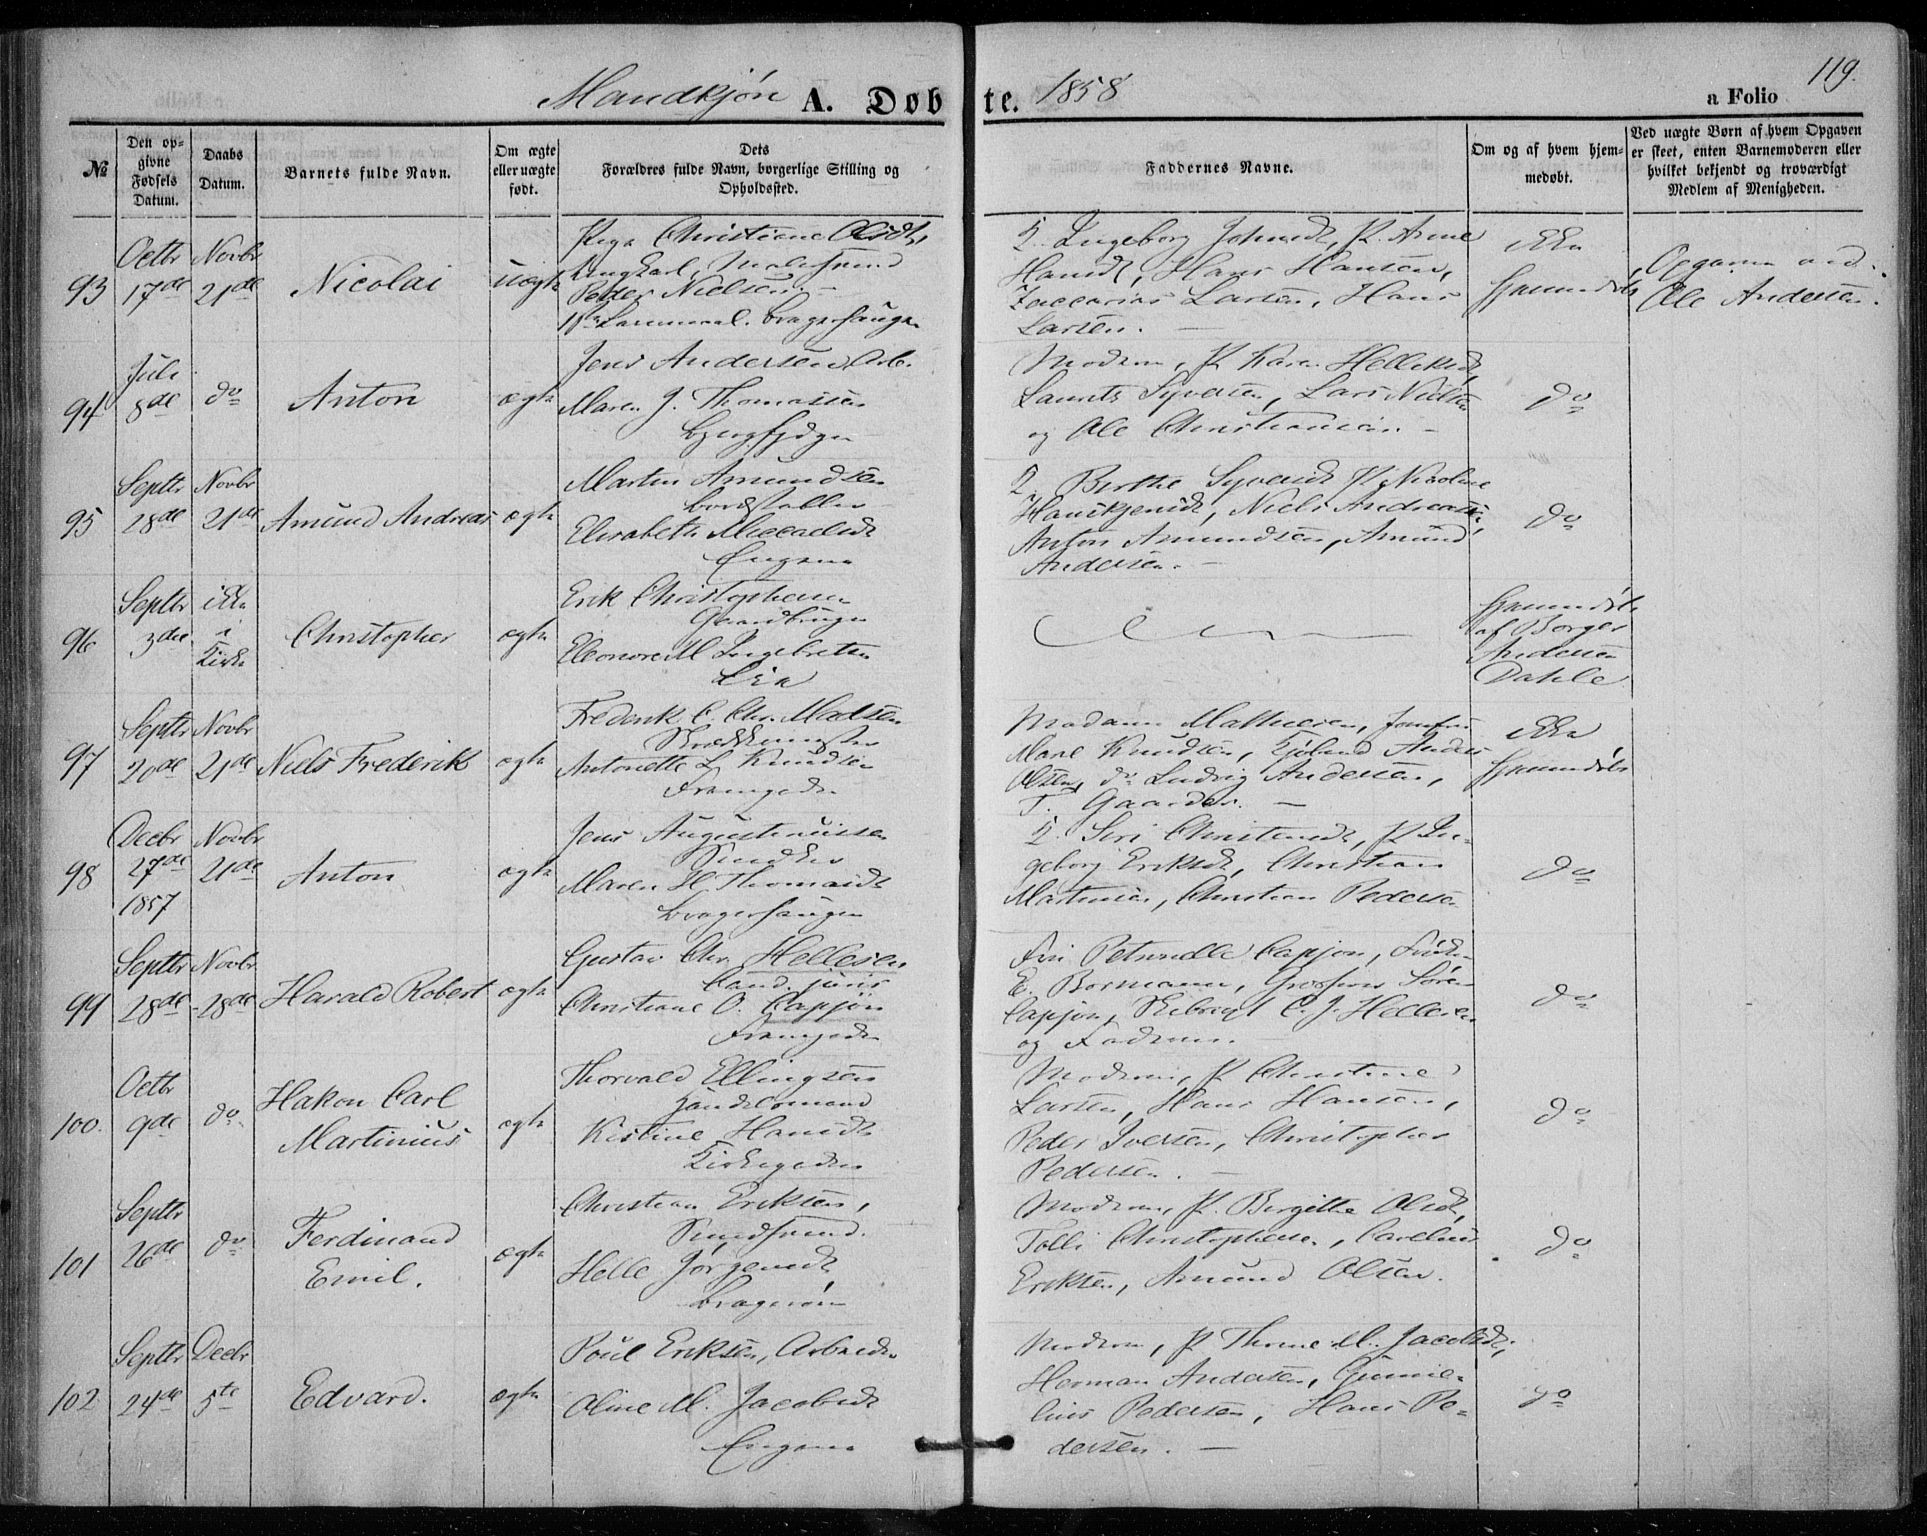 119.
Mandkjøn A. Døbte. 1858
a Folio
No
Den opgivne Fødsels Datum.
Daabs Datum.
Barnets fulde Navn.
Om ægte eller uægte født.
Dets Forældres fulde Navn, borgerlige Stilling og Opholdssted.
Faddernes Navne.
Om og af hvem hjemmedøbt.
Ved uægte Børn af hvem Opgaven er skeet, enten Barnemoderen eller hvilket bekjendt og troværdigt Medlem af Menigheden.
93
Octbr 17de
Novbr 21de
Nicolai
uægte
Pige Christiane Olsdt,
Ungkarl
Peder Nielsen.
K. Ingeborg Johnsdt, P. Anne
Hansdt, Hans Hansen,
Zaccarias Larsen, Hans
Larsen.
ikke
hjemmedøbt
Opgaven
Ole Andersen.
94
Juli 8de
do
Anton
ægte
Jens Andersen Arb.
Maren J. Thomassen
Modren, P. Karen Helleksdt
Laurits Syversen, Lars Nielsen
og Ole Christiansen.
do
95
Septbr 28de
Novbr 21de
Amund Andreas
ægte
Martin Amundsen
Elisabeth
Engene
K. Berthe Syversdt P. Nicoline
Niels Andreasen,
Anton Amundsen, Amund
Andersen.
do
96
Septbr 3die
ikke i Kirke
Christopher
ægte
Erik Christophersen
Gaardbruger
Eleonore M Ingebretsen
Lia
hjemmedøbt
af Borger
Andersen
Dahle
97
Septbr 20de
Novbr 21de
Niels Frederik
ægte
Frederik C. Chr. Madsen
Antonette L Knudsen
Madam Mathiesen, Jomfru
Mare Knudsen, Anders
Olsen, do Ludvig Andersen,
T. Gaarder.
ikke
hjemmedøbt
98
Decbr 27de 1857
Novbr 21de
Anton
ægte
Jens Augustinussen
Maren H. Thomasdt
Bragerhaugen
K. Siri Christensdt, P. In-
geborg Eriksdt, Christian
Martinsen, Christian Pedersen
do
99
Septbr 28de
Novbr 28de
Harald Robert
ægte
Gustav Chr. Hellesen
Cand. juris
Christiane O. Capjon
Petronelle Capjon,
E. Bormann, Søren
Capjon, C. J. Hellesen
og Fadren.
do
100.
Octbr 9de
do
Hakon Carl
Martinius
ægte
Thorvald Ellingsen
Handelsmand
Kistine Hansdt
Kirkegaden
Modren, P. Christine
Larsen, Hans Hansen,
Peder Iversen, Christopher
Pedersen.
do
101
Septbr 26de
do
Ferdinand
Emil.
ægte
Christian Eriksen,
Smedsvend.
Helle Jørgensdt
Bragerøen
Modren, P. Birgitte Olsdt,
Tolli Christophersen, Carelius
Eriksen, Amund Olsen.
do
102
Septbr 24de
Decbr 5te
Edvard.
ægte
Poul Eriksen, Arbeider
Oline M. Jacobsdt
Engene
Modren, P. Thrine M. Jacobsdt,
Herman Andersen, Gunne-
lius Pedersen, Hans Pe-
dersen.
do